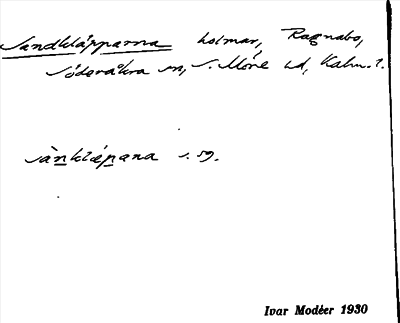 Sandkläpparna holmar, Ragnabo,
Söderåkra sn, S. Möre hd, Kalm. l.
sànklæpana s. 59.
Ivar Modéer 1930